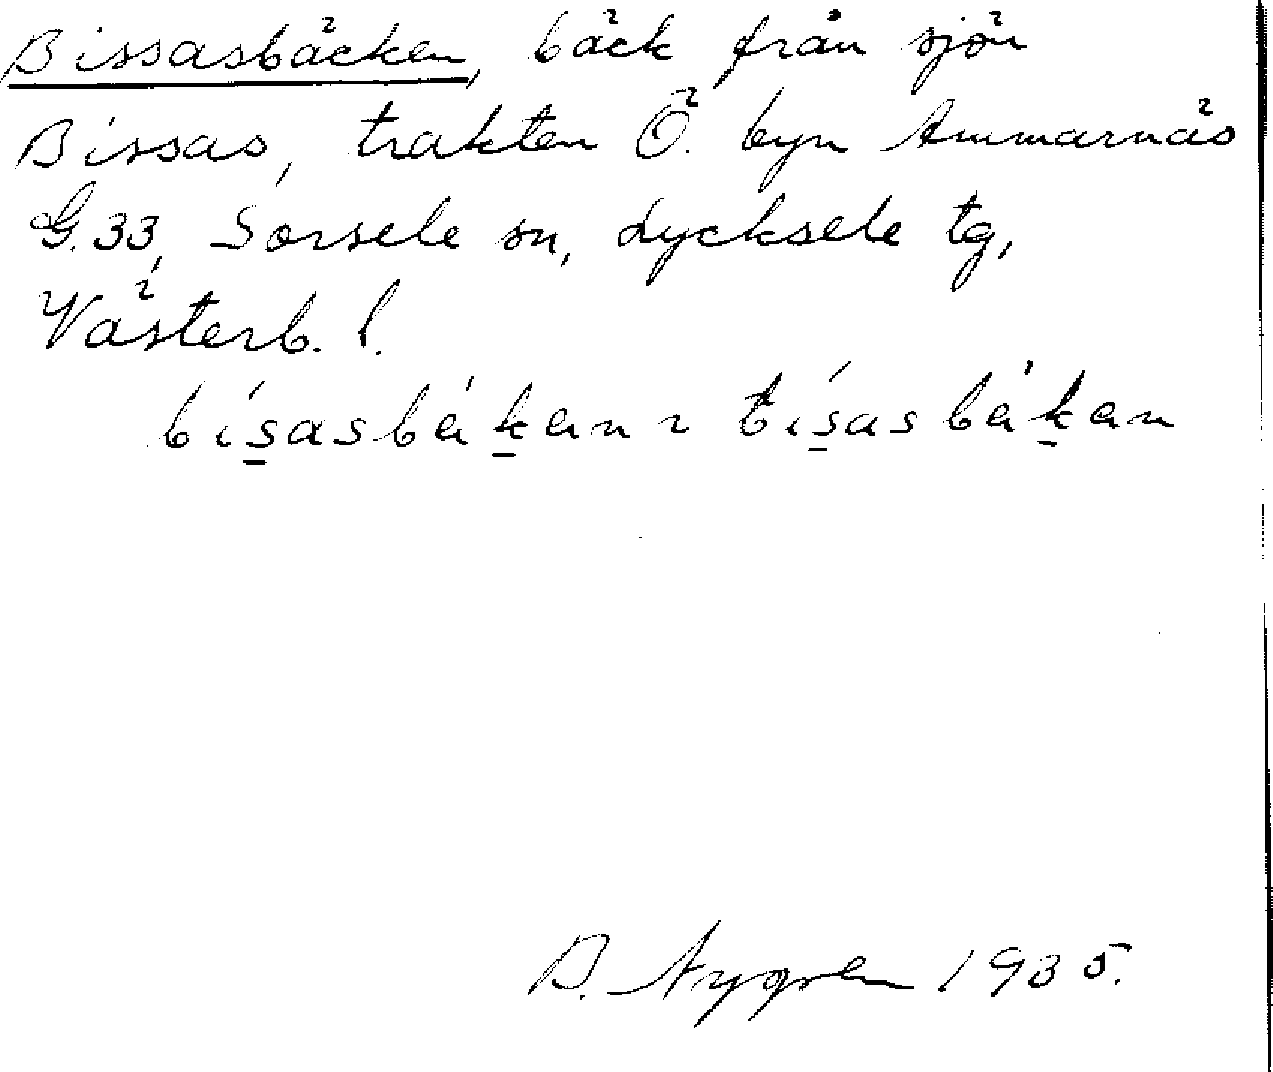 Bissasbäcken, bäck från sjön
Bissas, trakten Ö. byn Ammarnäs
G.33, Sorsele sn, Lycksele tg,
Västerb. l.
B. Nygren 1935.